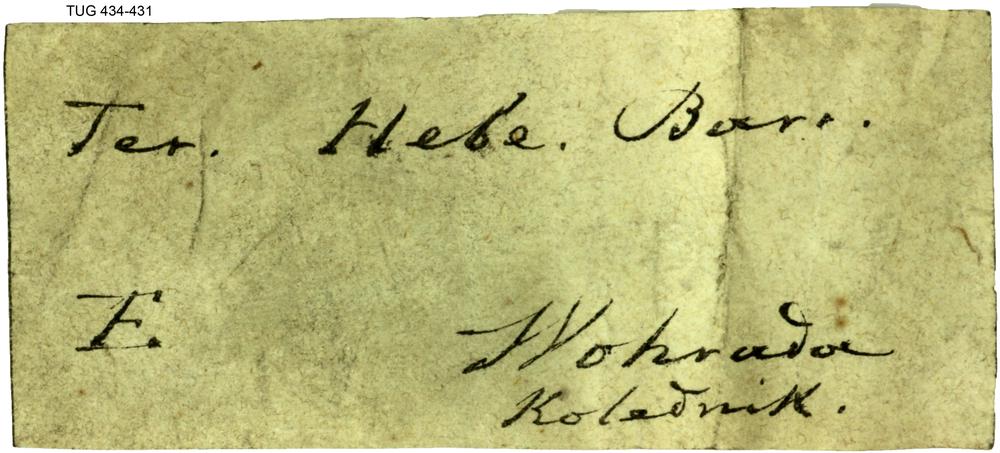 TUG 434-431
Ter. Hebe. Barr.
E. Wohrada
Kolednik.